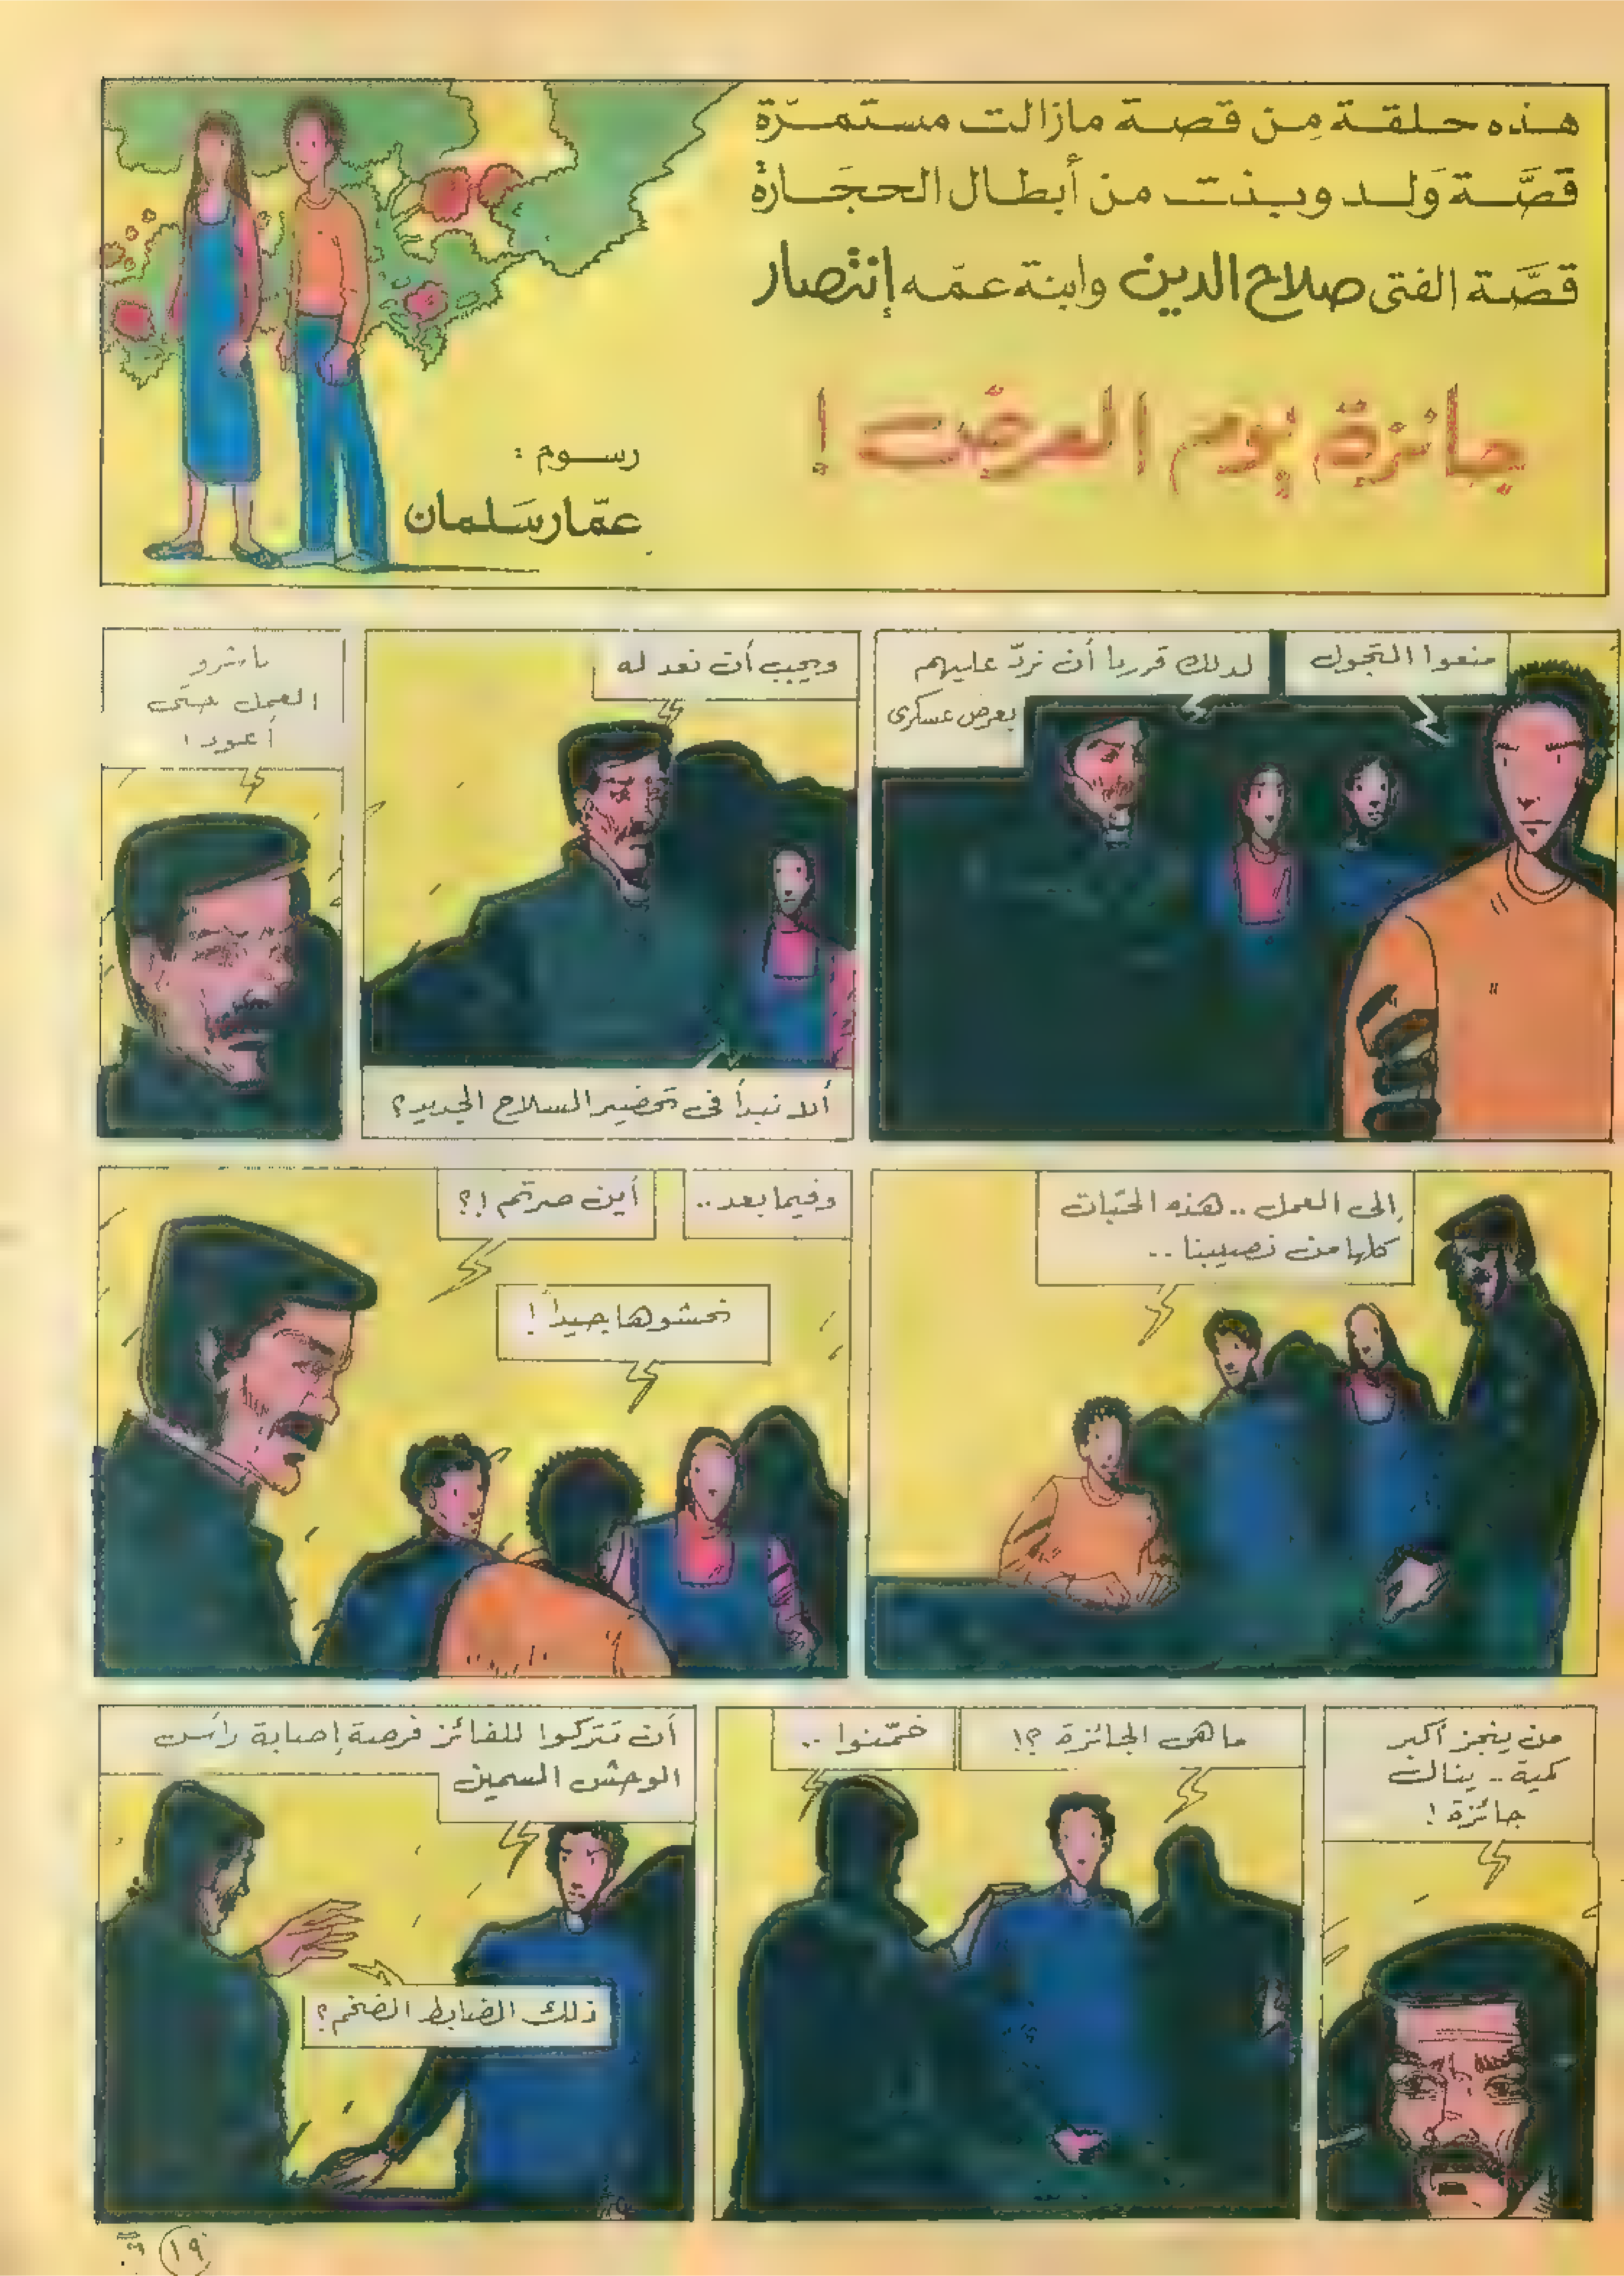 هذه حلقة مِن قصة مازالت مستمرّة
قصَّة وَلد وبنت من أبطال الحجَارة
قصَّة الفتى صلاح الدين وابنة عمّه إنتصار
جائزة يوم العرض !
رسوم :
عمّار سَلمان
منعوا التجول
لذلك قررنا أن نردّ عليهم
بعرض عسكرى
ويجب أن نعد له
ألا نبدأ فى تحضير السلاح الجديد؟
باشرو
العمل حتى
أعود !
إلى العمل .. هذه الحبّات
كلها من نصيبنا ..
وفيما بعد ..
أين صرتم !؟
نحشوها جيداً !
من ينجز أكبر
كمية .. ينال
جائزة !
ما هى الجائزة ؟!
خمّنوا ..
أن تتركوا للفائز فرصة إصابة رأس
الوحش السمين
ذلك الضابط الضخم؟
١٩